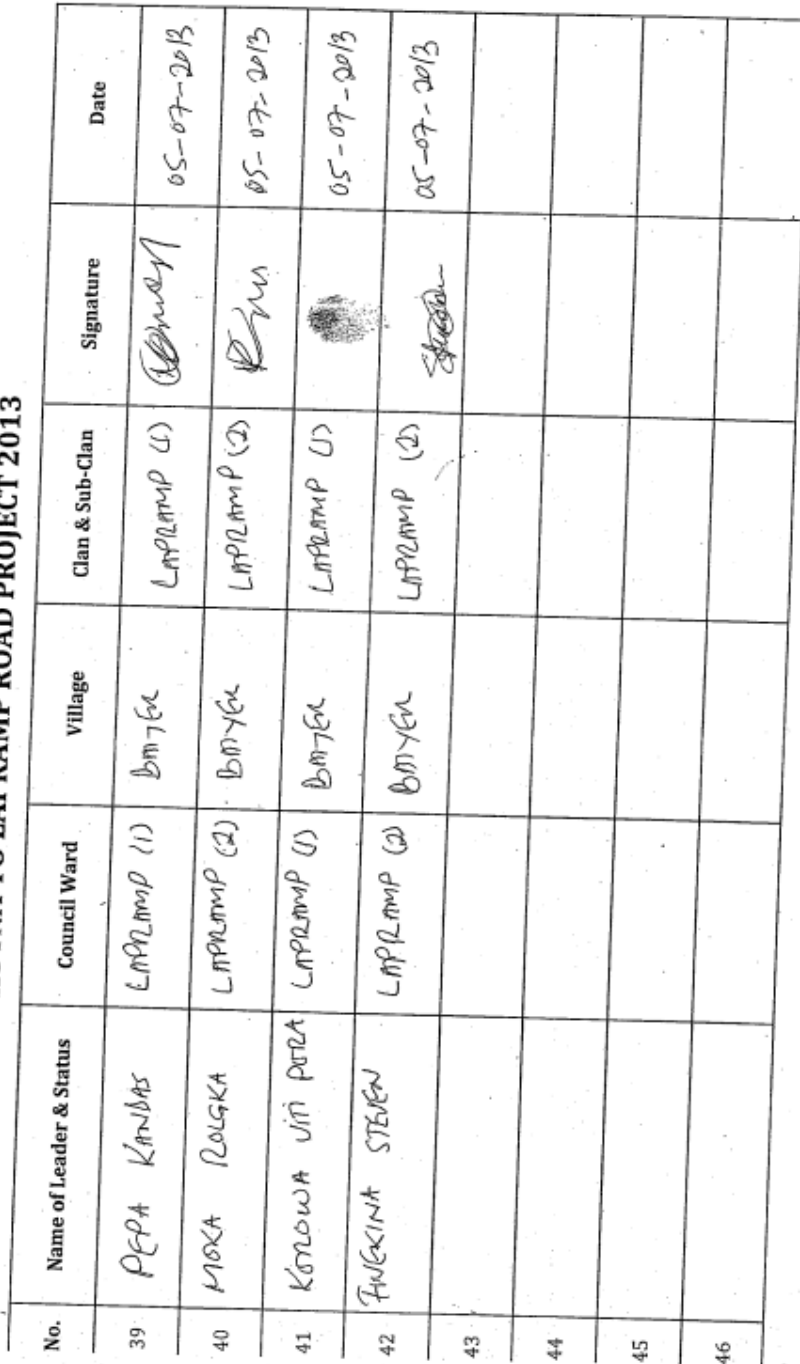 TO LAPRAMP ROAD PROJECT 2013
No. Name of Leader & Status Council Ward Village Clan & Sub-Clan Signature Date
39 PEPA KANDAS LAPRAMP (1) BAIYER LAPRAMP (1) 05-07-2013
40 MOKA ROLGKA LAPRAMP (2) BAIYER LAPRAMP (2) 05-07-2013
41 KOROWA LAPRAMP (1) BAIYER LAPRAMP (1) 05-07-2013
42 STEVEN LAPRAMP (2) BAIYER LAPRAMP (2) 05-07-2013
43
44
45
46